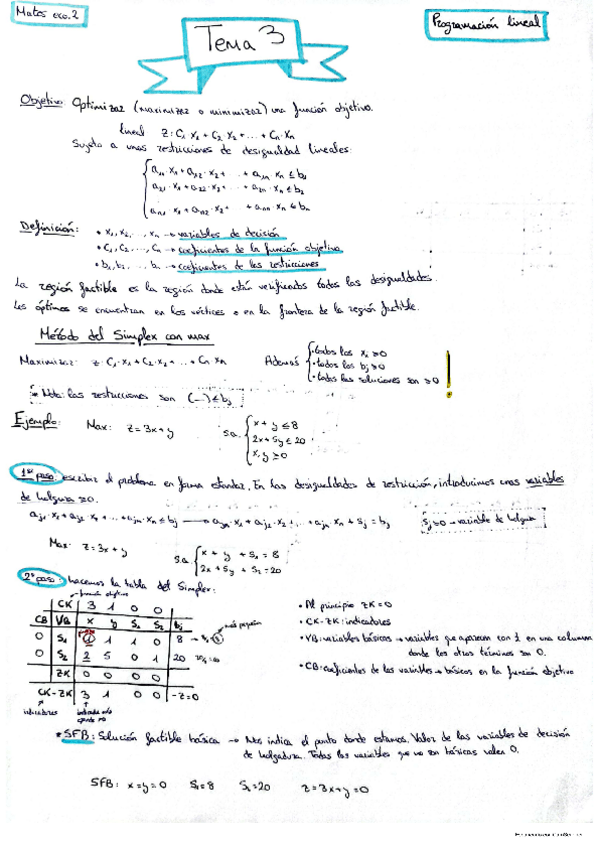 Mates eco.2
Programación lineal
Tema 3
Objetivo: Optimizar (maximizar o minimizar) una función objetivo.
lineal z: C₁ X₁ + C₂ X₂ + ... + Cn · Xn
Sujeto a unas restricciones de desigualdad lineales:
a₁₁ · X₁ + a₁₂ · X₂ + ... + a₁n Xn ≤ b₁
a₂₁ · X₁ + a₂₂ · X₂ + ... + a₂n · Xn ≤ b₂
an₁ · X₁ + an₂ · X₂ + ... + ann · Xn ≤ bn
Definición: • X₁, X₂, ..., Xn → variables de decisión
• C₁, C₂, ..., Cn → coeficientes de la función objetivo
• b₁, b₂, ... bn → coeficientes de las restricciones
La región factible es la región donde están verificadas todas las desigualdades.
Los óptimos se encuentran en los vértices o en la frontera de la región factible.
Método del Simplex con max
Maximizar: z = C₁ · X₁ + C₂ · X₂ + ... + Cn Xn
Además
• todos los xi ≥ 0
• todos los bj ≥ 0
• todas las soluciones son ≥ 0
!
* Nota: las restricciones son (...) ≤ bj
Ejemplo: Max: z = 3x + y
s.a.
x + y ≤ 8
2x + 5y ≤ 20
x, y ≥ 0
1er paso: escribir el problema en forma estándar. En las desigualdades de restricción, introducimos unas variables
de holgura ≥ 0.
aj₁ · X₁ + aj₂ X₂ + ... + ajn · Xn ≤ bj → aj₁ · X₁ + aj₂ · X₂ + ... + ajn · Xn + Sj = bj
Sj ≥ 0 → variable de holgura
Max: z = 3x + y
s.a.
x + y + S₁ = 8
2x + 5y + S₂ = 20
2º paso: hacemos la tabla del Simplex:
función objetivo
CK 3 1 0 0
CB VB x y S₁ S₂ bj
más pequeño
0 S₁ 1 1 1 0 8
0 S₂ 2 5 0 1 20
ZK 0 0 0 0
CK - ZK 3 1 0 0 -z = 0
indicadores
• Al principio ZK = 0
• CK - ZK: indicadores
• VB: variables básicas → variables que aparecen con 1 en una columna
donde los otros términos son 0.
• CB: coeficientes de las variables → básicas en la función objetivo
* SFB: Solución factible básica → Nos indica el punto donde estamos. Valor de las variables de decisión
de holgadura. Todas las variables que no son básicas valen 0.
SFB: x = y = 0 S₁ = 8 S₂ = 20 z = 3x + y = 0